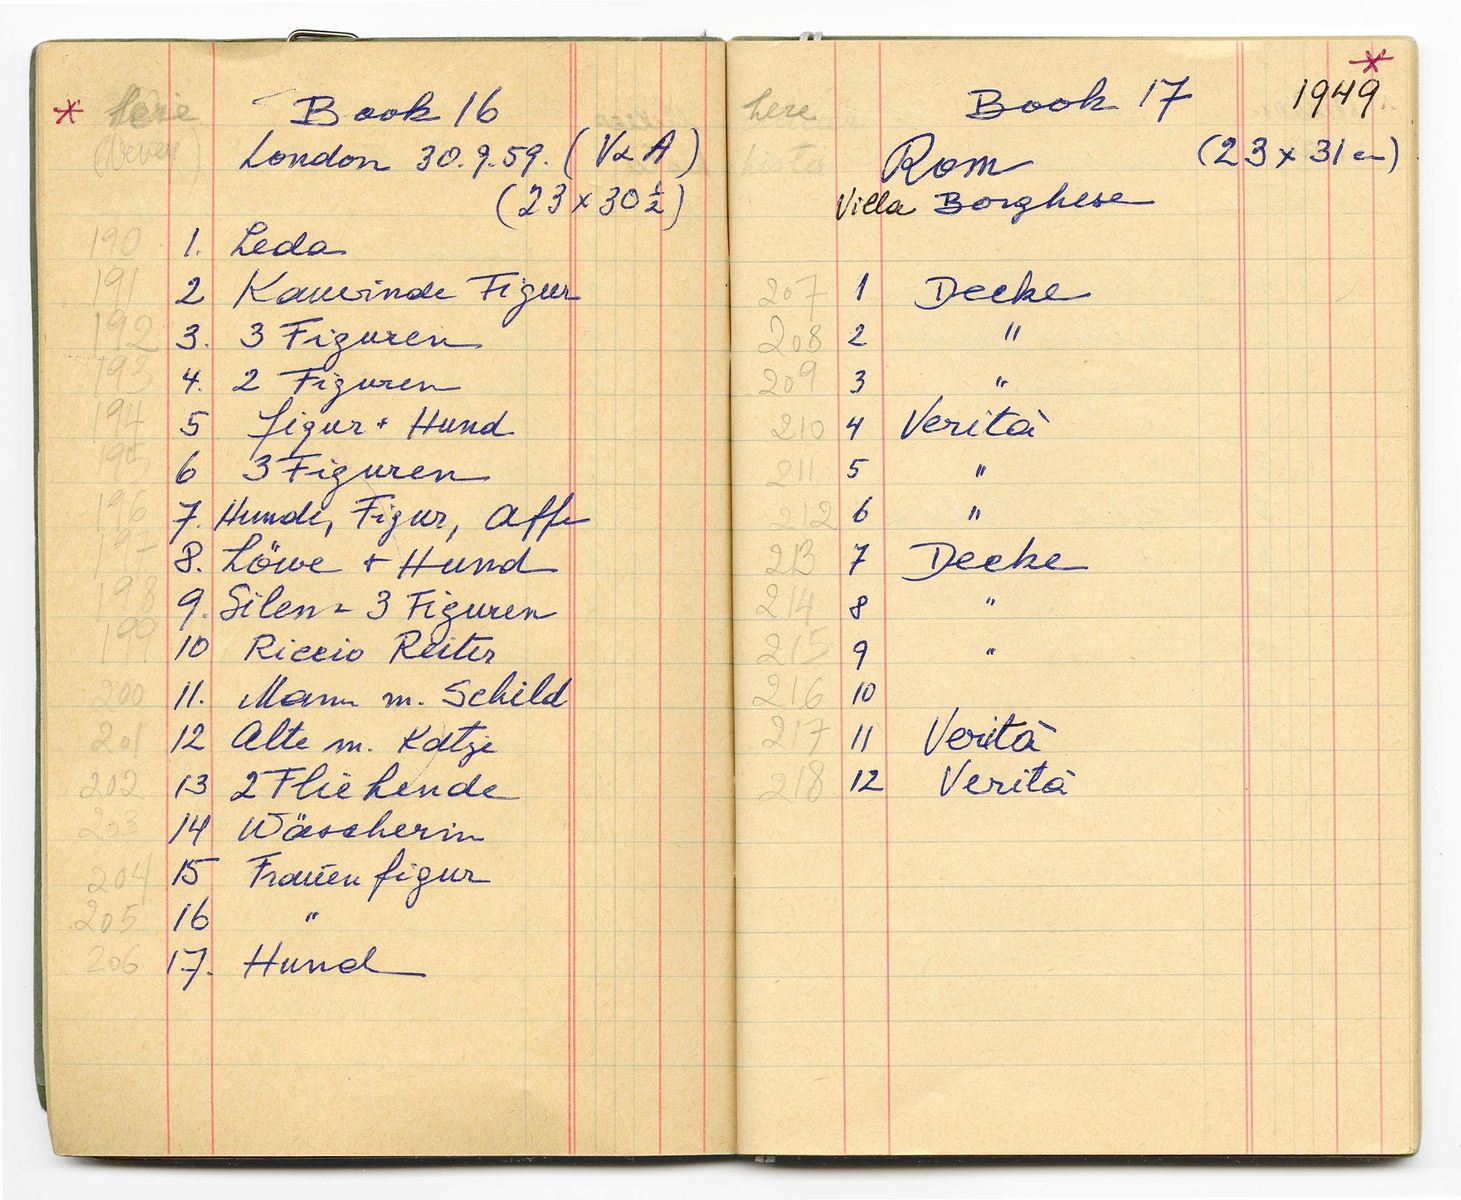 * here Book 16
(Vevey) London 30.9.59. (V&A)
(23 x 30 ½)
190 1. Leda
191 2 Kauernde Figur
192 3. 3 Figuren
193 4. 2 Figuren
194 5 Figur + Hund
195 6 3 Figuren
196 7. Hunde, Figur, Affe
197 8. Löwe + Hund
198 9. Silen - 3 Figuren
199 10 Riccio Reiter
200 11. Mann m. Schild
201 12 Alte m. Katze
202 13 2 Fliehende
203 14 Wäscherin
204 15 Frauenfigur
205 16 "
206 17. Hund
here Book 17 1949 *
Rom (23 x 31 cm)
Villa Borghese
207 1 Decke
208 2 "
209 3 "
210 4 Verità
211 5 "
212 6 "
213 7 Decke
214 8 "
215 9 "
216 10
217 11 Verità
218 12 Verità